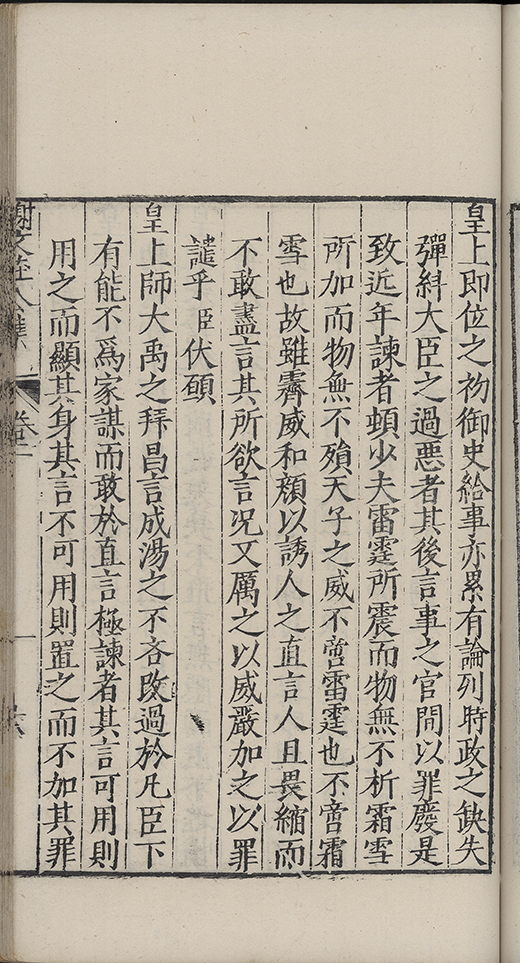 皇上即位之初御史給事亦累有論列時政之缺失
彈糾大臣之過惡者其後言事之官間以罪廢是
致近年諫者頓少夫雷霆所震而物無不折霜雪
所加而物無不殞天子之威不啻雷霆也不啻霜
雪也故雖霽威和顔以誘人之直言人且畏縮而
不敢盡言其所欲言况又厲之以威嚴加之以罪
譴乎臣伏願
皇上師大禹之拜昌言成湯之不吝改過於凡臣下
有能不爲家謀而敢於直言極諫者其言可用則
用之而顯其身其言不可用則置之而不加其罪